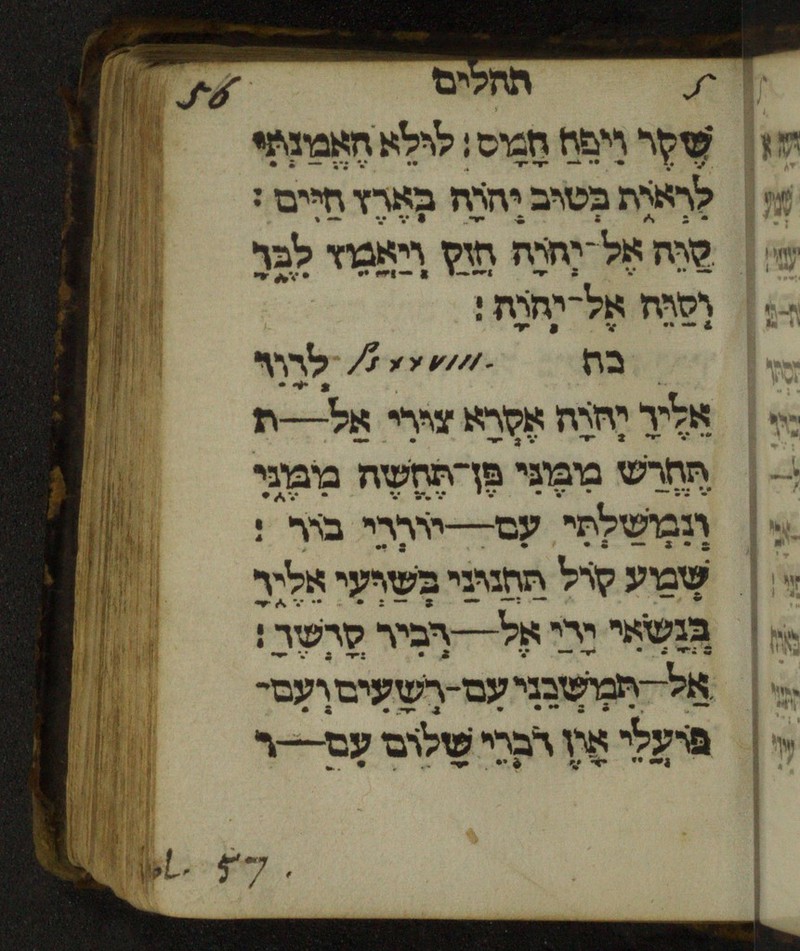 56 תהלים
שֶׁקֶר וִיפֵחַ חָמָס׃ לוּלֵא הֶאֱמַנְתִּי
לִרְאוֹת בְּטוּב יְהוָה בְּאֶרֶץ חַיִּים׃
קַוֵּה אֶל־יְהוָה חֲזַק וְיַאֲמֵץ לִבֶּךָ
וְקַוֵּה אֶל־יְהוָה׃
כח Ps xxVIII. לְדָוִד
אֵלֶיךָ יְהוָה אֶקְרָא צוּרִי אַל—ת
תֶּחֱרַשׁ מִמֶּנִּי פֶּן־תֶּחֱשֶׁה מִמֶּנִּי
וְנִמְשַׁלְתִּי עִם—יוֹרְדֵי בוֹר׃
שְׁמַע קוֹל תַּחֲנוּנַי בְּשַׁוְּעִי אֵלֶיךָ
בְּנָשְׂאִי יָדַי אֶל—דְּבִיר קָדְשֶׁךָ׃
אַל—תִּמְשְׁכֵנִי עִם־רְשָׁעִים וְעִם־
פּוֹעֲלֵי אָוֶן דֹּבְרֵי שָׁלוֹם עִם—ר
57.